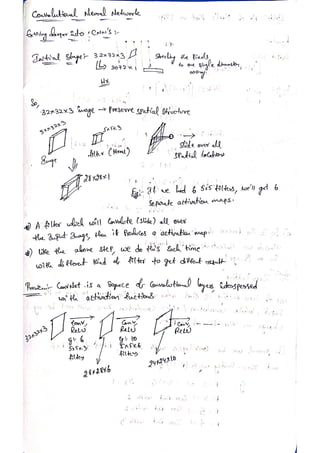 Convolutional Neural Network
Getting deeper into :
Initial Shape:- 32x32x3
3072 x 1
Stretching the Pixels
to one single
So,
32x32x3 image → Preserve spatial structure
32x32x3
5x5x3
Image
filter
Slide over all
spatial locations
28x28x1
Eg:- If we had 6 5x5 filters, we'll get 6
Separate activation maps.
A filter which will convolute (slide) all over
the Input Image, then it Produces a activation map
like the above step, we do this each time
with different kind of filter to get different result
Preview:- ConvNet is a Sequence of Convolutional layers interspersed
with activation functions
32x32x3
Conv,
ReLU
6
5x5x3
filters
28x28x6
Conv,
ReLU
10
5x5x6
filters
24x24x10
Conv,
ReLU